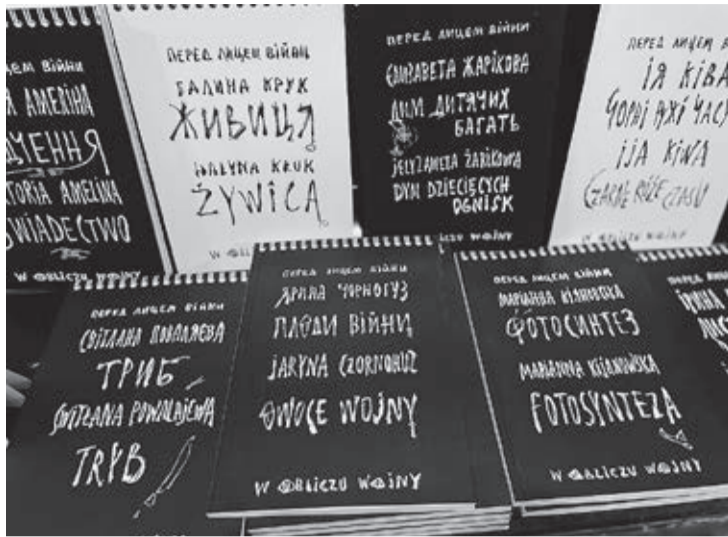 ПЕРЕД ЛИЦЕМ ВІЙНИ
АМЕЛІНА
TORIA AMELINA
W OBLICZU WOJNY
ПЕРЕД ЛИЦЕМ ВІЙНИ
ГАЛИНА КРУК
ЖИВИЦЯ
HALYNA KRUK
ŻYWICA
W OBLICZU
ПЕРЕД ЛИЦЕМ ВІЙНИ
ЄЛИЗАВЕТА ЖАРІКОВА
ДИМ ДИТЯЧИХ
БАГАТЬ
JELYZAWETA ŻARIKOWA
DYM DZIECIĘCYCH
OGNISK
WOJNY
ПЕРЕД ЛИЦЕМ В
ІЯ КІВА
ЧОРНІ РУЖІ ЧАС
IJA KIWA
CZARNE RÓŻE CZASU
W OBLICZU WOJNY
ПЕРЕД ЛИЦЕМ ВІЙНИ
СВІТЛАНА ПОВАЛЯЄВА
ТРИБ
SWITŁANA POWALAJEWA
TRYB
ПЕРЕД ЛИЦЕМ ВІЙНИ
ЯРИНА ЧОРНОГУЗ
ПЛОДИ ВІЙНИ
JARYNA CZORNOHUZ
OWOCE WOJNY
W OBLICZU WOJNY
ПЕРЕД ЛИЦЕМ ВІЙНИ
МАРІАННА КІЯНОВСЬКА
ФОТОСИНТЕЗ
MARIANNA KIJANOWSKA
FOTOSYNTEZA
W OBLICZU WOJNY
ПЕРЕД ЛИЦЕМ
ІРИНА